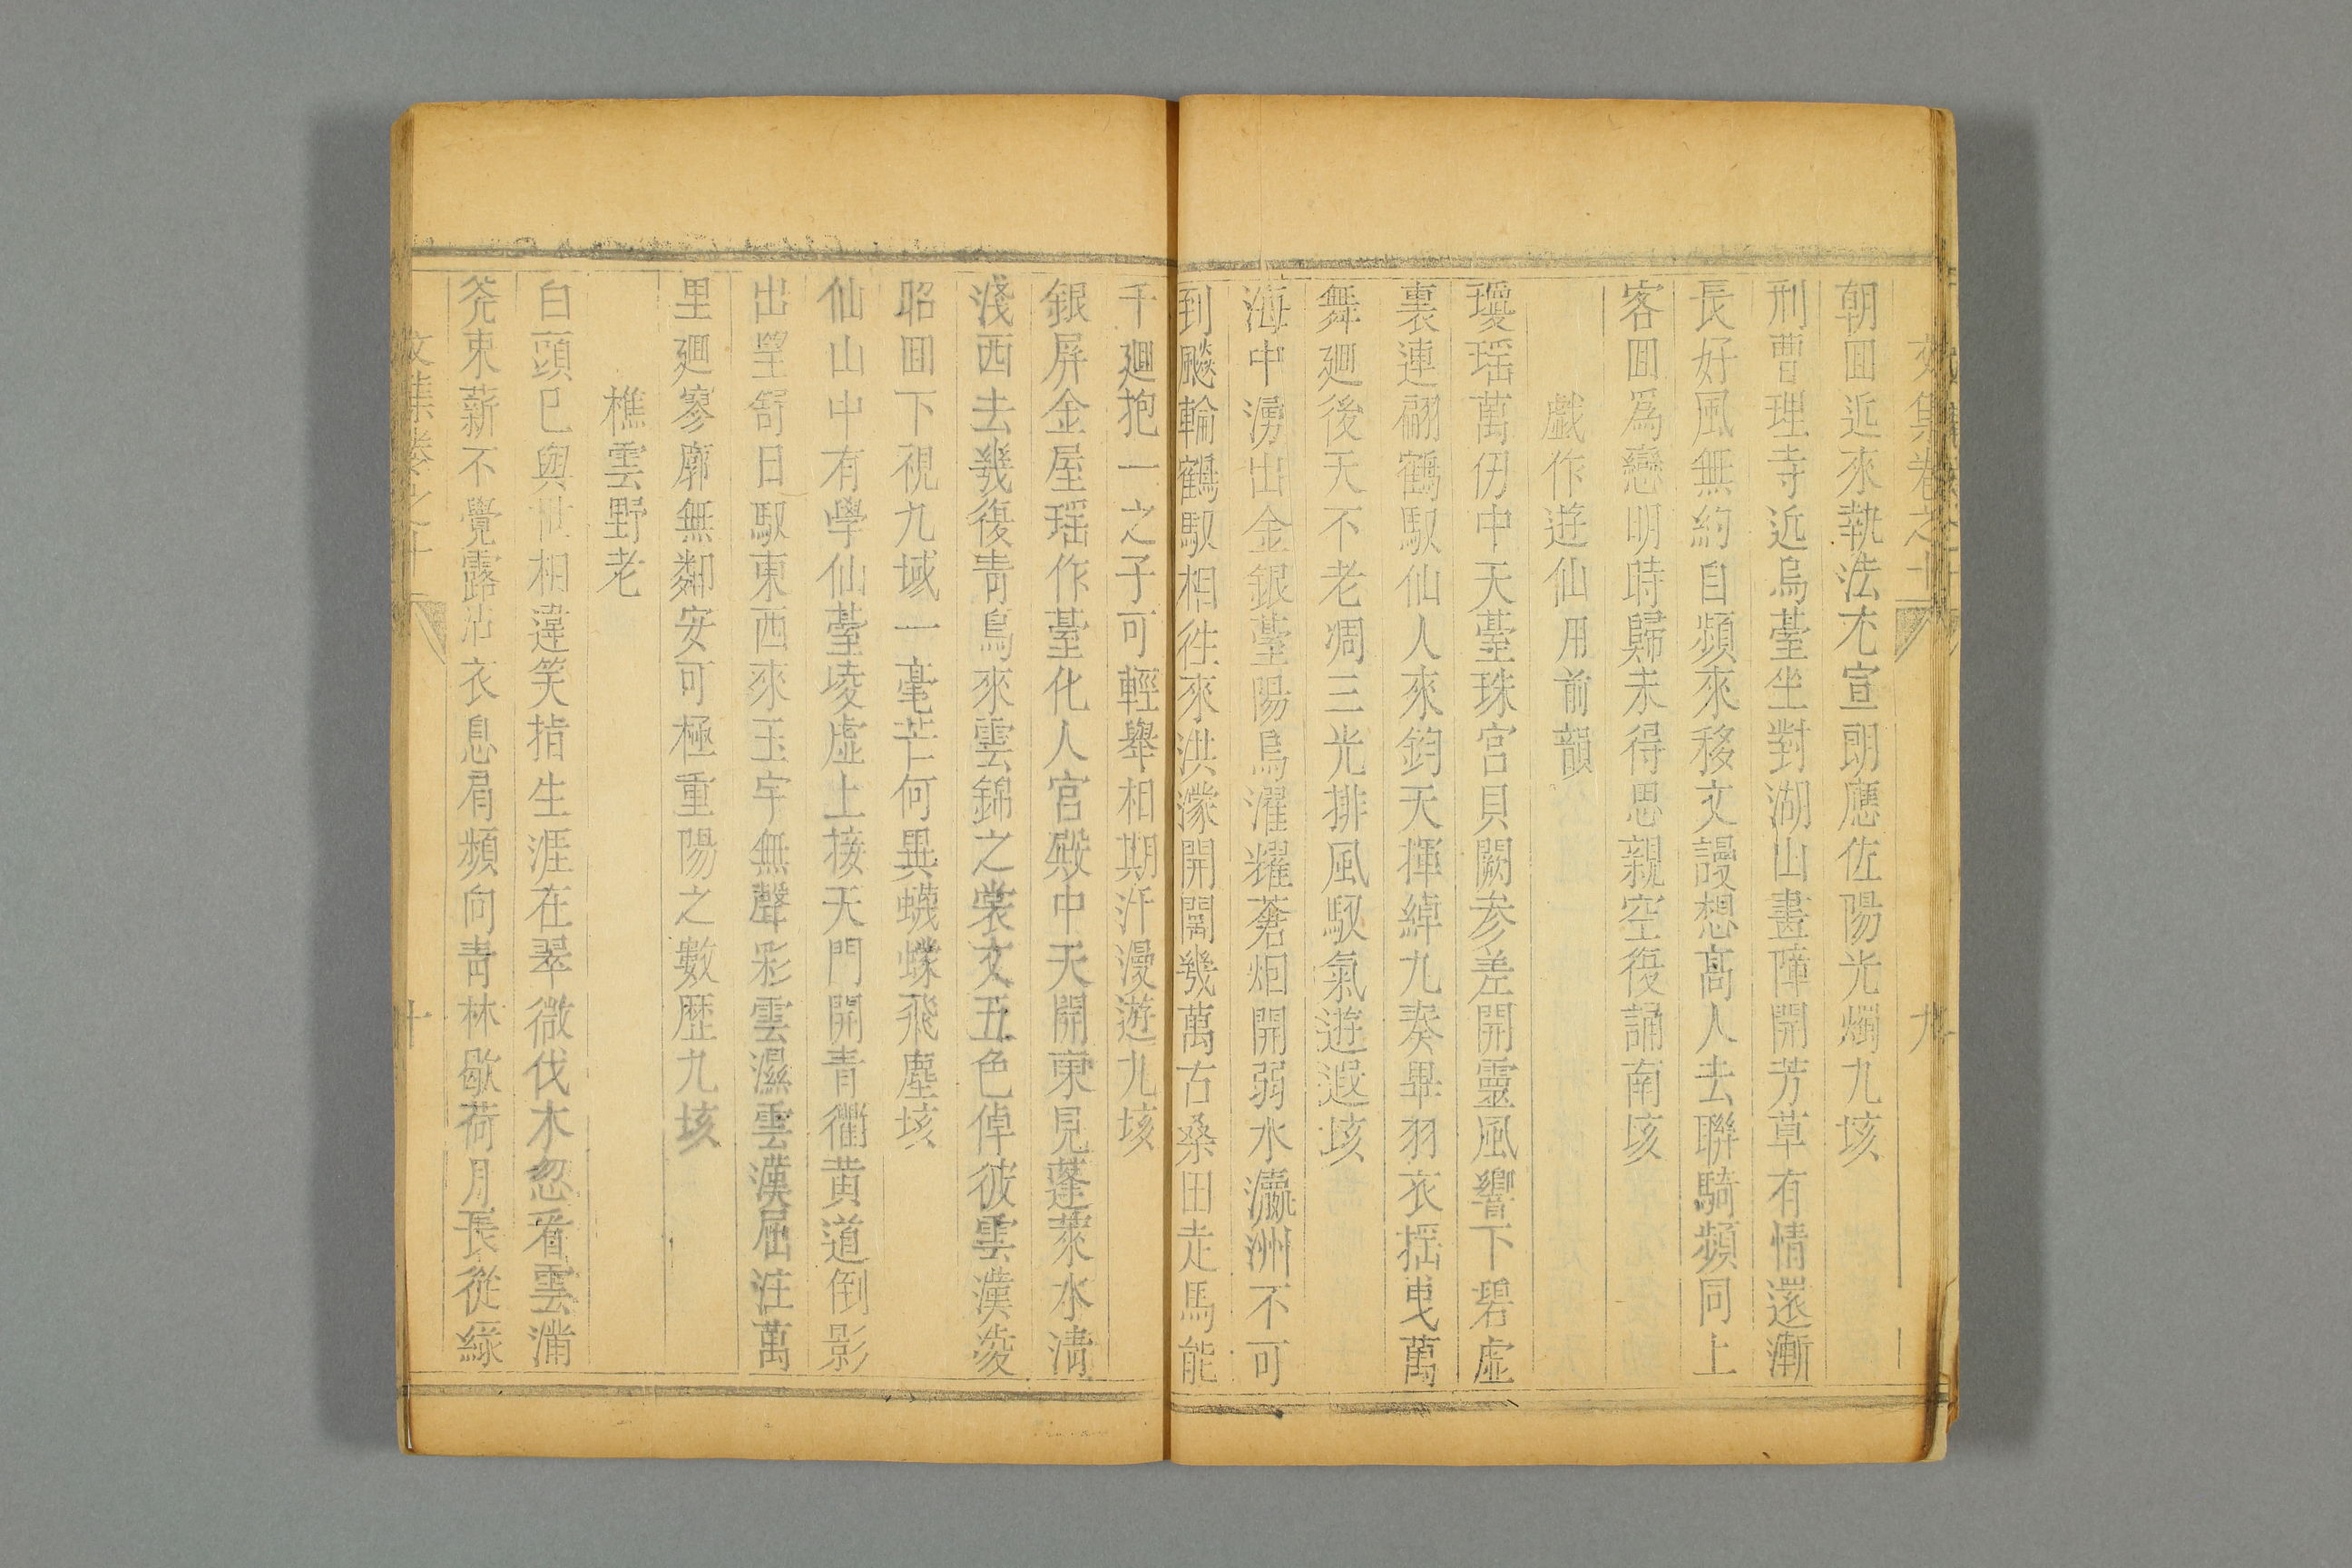 文集卷之十一
九
朝囬近來執法尤宣朗應佐陽光燭九垓
刑曹理寺近烏臺坐對湖山畫障開芳草有情還漸
長好風無約自頻來移文謾想高人去聯騎頻同上
客囬爲戀明時歸未得思親空復誦南垓
戲作遊仙用前韻
瓊瑶萬仞中天臺珠宮貝闕參差開靈風響下碧虛
裏連翩鶴馭仙人來鈞天揮綽九奏畢羽衣揺曳萬
舞廻後天不老凋三光排風馭氣遊遐垓
海中湧出金銀臺陽烏濯耀蒼烟開弱水瀛洲不可
到飇輪鶴馭相徃來洪濛開闔幾萬古桑田走馬能
千廻抱一之子可輕舉相期汗漫遊九垓
銀屏金屋瑶作臺化人宮殿中天開東見蓬萊水清
淺西去幾復青鳥來雲錦之裳文五色倬彼雲漢凌
昭囬下視九域一毫芒何異蠛蠓飛塵垓
仙山中有學仙臺凌虛上接天門開青衢黄道倒影
出望舒日馭東西來玉宇無聲彩雲濕雲漢屈注萬
里廻寥廓無鄰安可極重陽之數歷九垓
樵雲野老
白頭已與世相違笑指生涯在翠微伐木忽看雲滿
谷束薪不覺露沾衣息肩頻向青林歇荷月長從緑
文集卷之十一
十